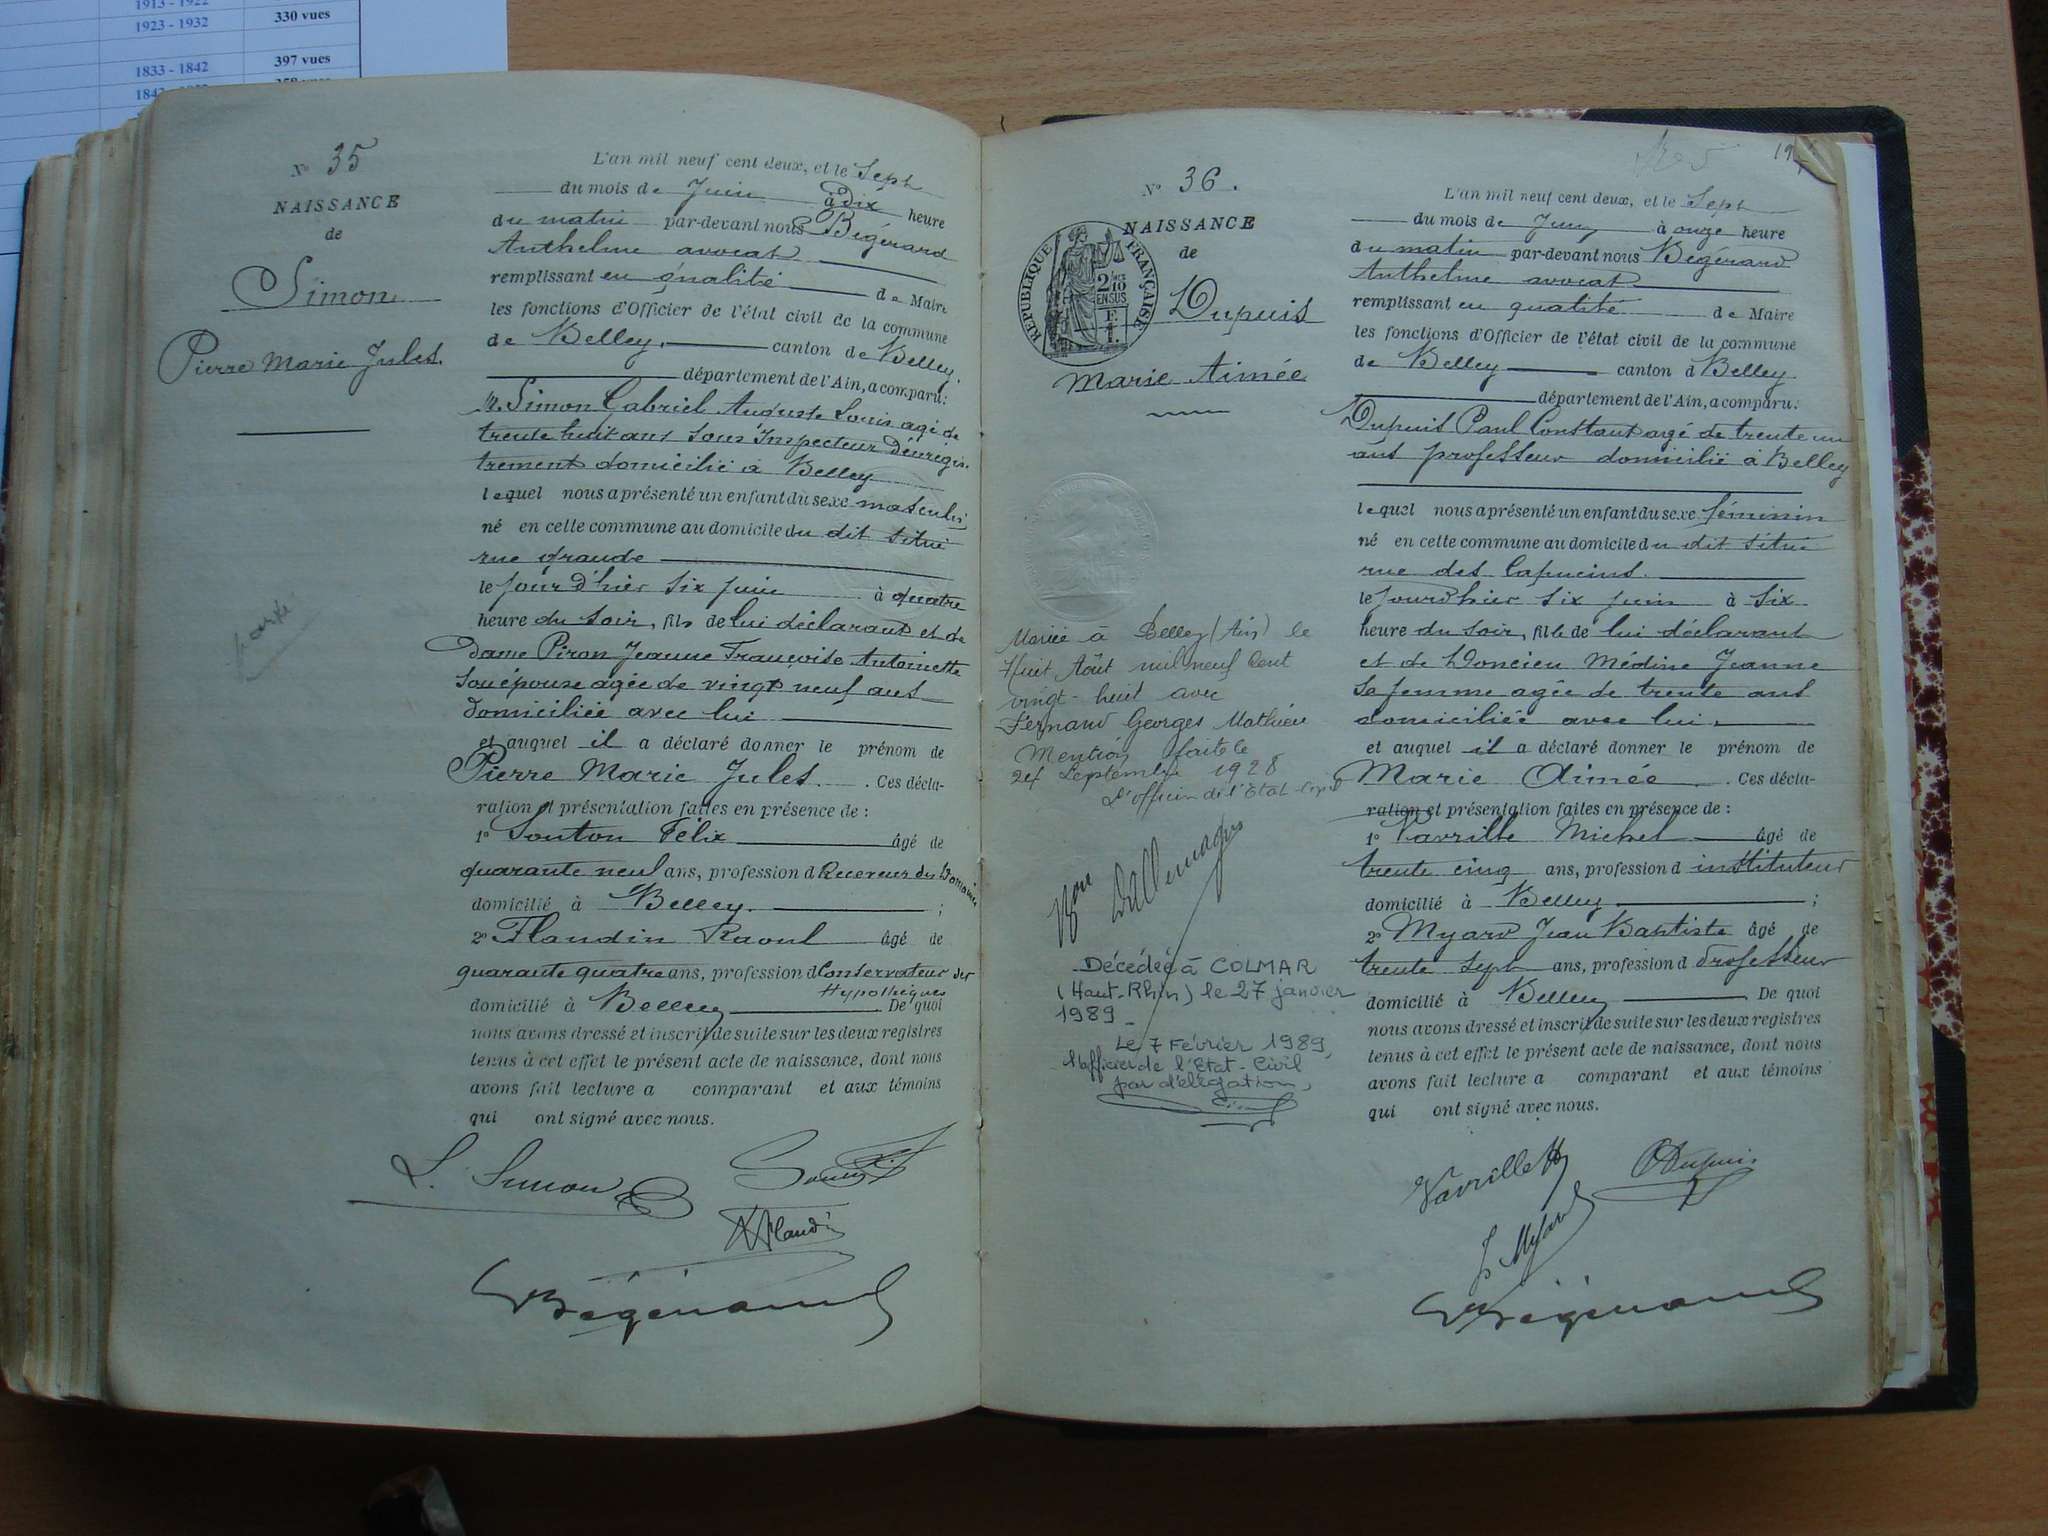 1913 - 1922
1923 - 1932 330 vues
1833 - 1842 397 vues
N° 35
NAISSANCE
de
Simon
Pierre Marie Jules.
L'an mil neuf cent deux, et le Sept
du mois de Juin à dix heure
du matin par-devant nous Bégérard
Anthelme avocat
remplissant en qualité de Maire
les fonctions d'Officier de l'état civil de la commune
de Belley, canton de Belley,
département de l'Ain, a comparu:
M. Simon Gabriel Auguste Louis agé de
trente huit ans Sous Inspecteur D'enregis-
trement domicilié à Belley
lequel nous a présenté un enfant du sexe masculin
né en cette commune au domicile du dit situé
rue grande
le jour d'hier six juin à quatre
heure du soir, fils de lui déclarant et de
Dame Piron Jeanne Françoise Antoinette
Son épouse agée de vingt neuf ans
domiciliée avec lui
et auquel il a déclaré donner le prénom de
Pierre Marie Jules. Ces décla-
ration et présentation faites en présence de :
1° Souton Félix âgé de
quarante neuf ans, profession d Receveur des Domaines
domicilié à Belley. ;
2° Flandin Raoul âgé de
quarante quatre ans, profession d Conservateur des
Hypothèques
domicilié à Belley De quoi
nous avons dressé et inscrit de suite sur les deux registres
tenus à cet effet le présent acte de naissance, dont nous
avons fait lecture a comparant et aux témoins
qui ont signé avec nous.
L. Simon
Flandin
Bégérard
N° 36.
NAISSANCE
de
RÉPUBLIQUE FRANÇAISE
2/10 EN SUS
F.
1.
Dupuis
Marie Aimée
Mariée à Belley (Ain) le
Huit Août mil neuf cent
vingt-huit avec
Fernand Georges Mathieu
Mention faite le
24 Septembre 1928
L'officier de l'Etat-Civil
Bon Dallemagne
Décédée à COLMAR
(Haut-Rhin) le 27 janvier
1989
Le 7 Février 1989,
l'officier de l'Etat-Civil
par délégation,
L'an mil neuf cent deux, et le Sept
du mois de Juin à onze heure
du matin par-devant nous Bégérard
Anthelme avocat
remplissant en qualité de Maire
les fonctions d'Officier de l'état civil de la commune
de Belley canton d Belley
département de l'Ain, a comparu:
Dupuis Paul Constant agé de trente un
ans professeur domicilié à Belley
lequel nous a présenté un enfant du sexe féminin
né en cette commune au domicile du dit situé
rue des Capucins.
le jour d'hier six juin à six
heure du soir, fille de lui déclarant
et de Doncieu Médine Jeanne
Sa femme agée de trente ans
domiciliée avec lui.
et auquel il a déclaré donner le prénom de
Marie Aimée. Ces décla-
ration et présentation faites en présence de :
1° Vavrille Michel âgé de
trente cinq ans, profession d instituteur
domicilié à Belley ;
2° Myard Jean Baptiste âgé de
trente sept ans, profession d Professeur
domicilié à Belley De quoi
nous avons dressé et inscrit de suite sur les deux registres
tenus à cet effet le présent acte de naissance, dont nous
avons fait lecture a comparant et aux témoins
qui ont signé avec nous.
Vavrille
Dupuis
J. Myard
Bégérard